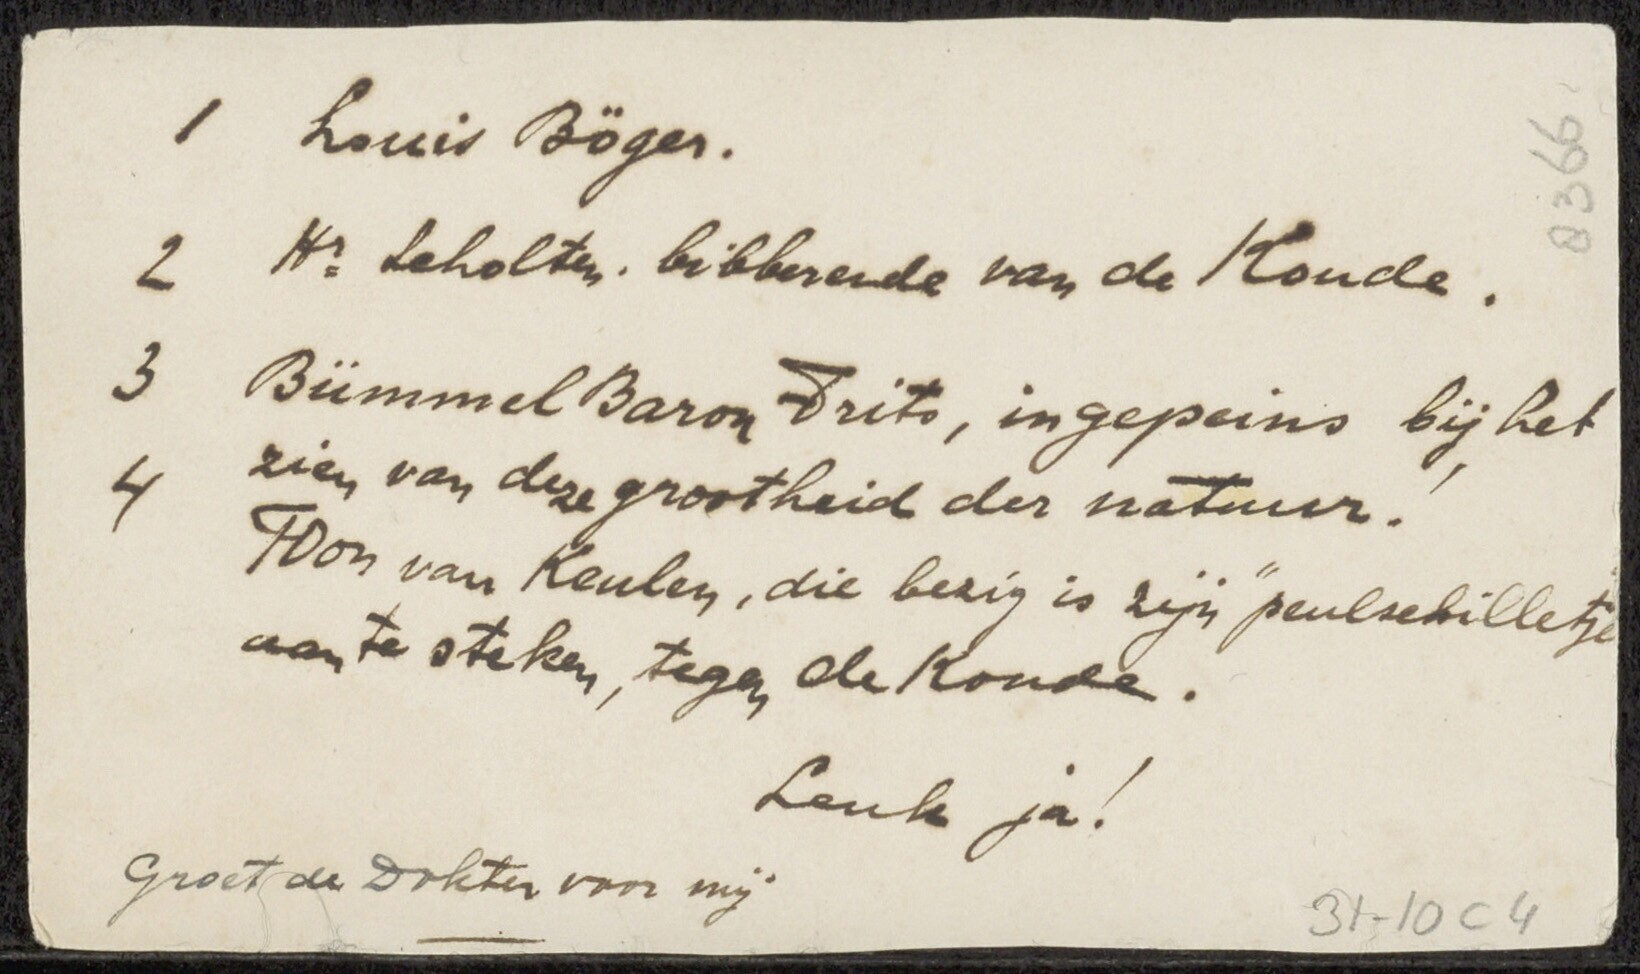 1 Louis Böger.
2 Hr. Scholten. bibberende van de Koude.
3 Bümmel Baron Frits, in gepeins bij het
zien van deze grootheid der natuur!
4 Toon van Keulen, die bezig is zijn "peulschilletje
aan te steken, tegen de Koude.
Leuk ja!
Groet de Dokter voor mij
8366
31-10 C 4